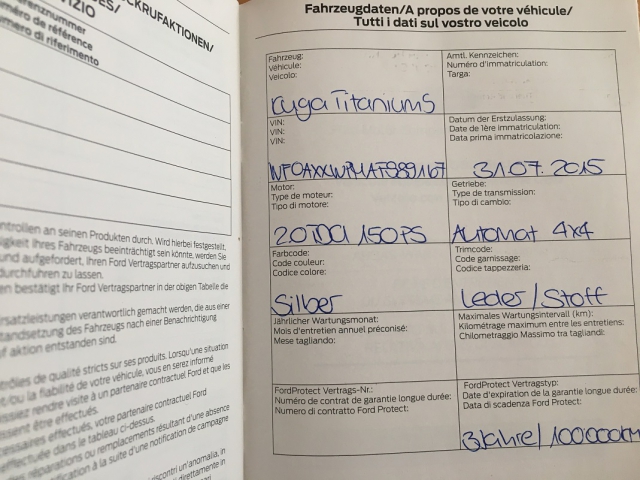 CKRUFAKTIONEN/
VIZIO
erenznummer
méro de référence
mero di riferimento
ntrollen an seinen Produkten durch. Wird hierbei festgestellt,
igkeit Ihres Fahrzeugs beeinträchtigt sein könnte, werden Sie
und aufgefordert, Ihren Ford Vertragspartner aufzusuchen und
durchführen zu lassen.
en bestätigt Ihr Ford Vertragspartner in der obigen Tabelle die
rsatzleistungen verantwortlich gemacht werden, die aus einer
tandsetzung des Fahrzeugs nach einer Benachrichtigung
f aktion entstanden sind.
trôles de qualité stricts sur ses produits. Lorsqu'une situation
t/ou la fiabilité de votre véhicule, vous en serez informé
issiez rendre visite à un partenaire contractuel Ford et que les
issent être effectués.
cessaires effectués, votre partenaire contractuel Ford
effectuée dans le tableau ci-dessus.
es réparations ou remplacements résultant d'une absence
à la suite d'une notification de campagne
riscontri un'anomalia, in
direttamente in
Fahrzeugdaten/A propos de votre véhicule/
Tutti i dati sul vostro veicolo
Fahrzeug:
Véhicule:
Veicolo:
Kuga Titanium S
Amtl. Kennzeichen:
Numéro d'immatriculation:
Targa:
VIN:
VIN:
VIN:
Datum der Erstzulassung:
Date de 1ère immatriculation:
Data prima immatricolazione:
31.07.2015
Motor:
Type de moteur:
Tipo di motore:
2.0 TDCI 150PS
Getriebe:
Type de transmission:
Tipo di cambio:
Automat 4x4
Farbcode:
Code couleur:
Codice colore:
Silber
Trimcode:
Code garnissage:
Codice tappezzeria:
Leder/Stoff
Jährlicher Wartungsmonat:
Mois d'entretien annuel préconisé:
Mese tagliando:
Maximales Wartungsintervall (km):
Kilométrage maximum entre les entretiens:
Chilometraggio Massimo tra tagliandi:
FordProtect Vertrags-Nr.:
Numéro de contrat de garantie longue durée:
Numero di contratto Ford Protect:
FordProtect Vertragstyp:
Date d'expiration de la garantie longue durée:
Data di scadenza Ford Protect:
3 Jahre/100000km